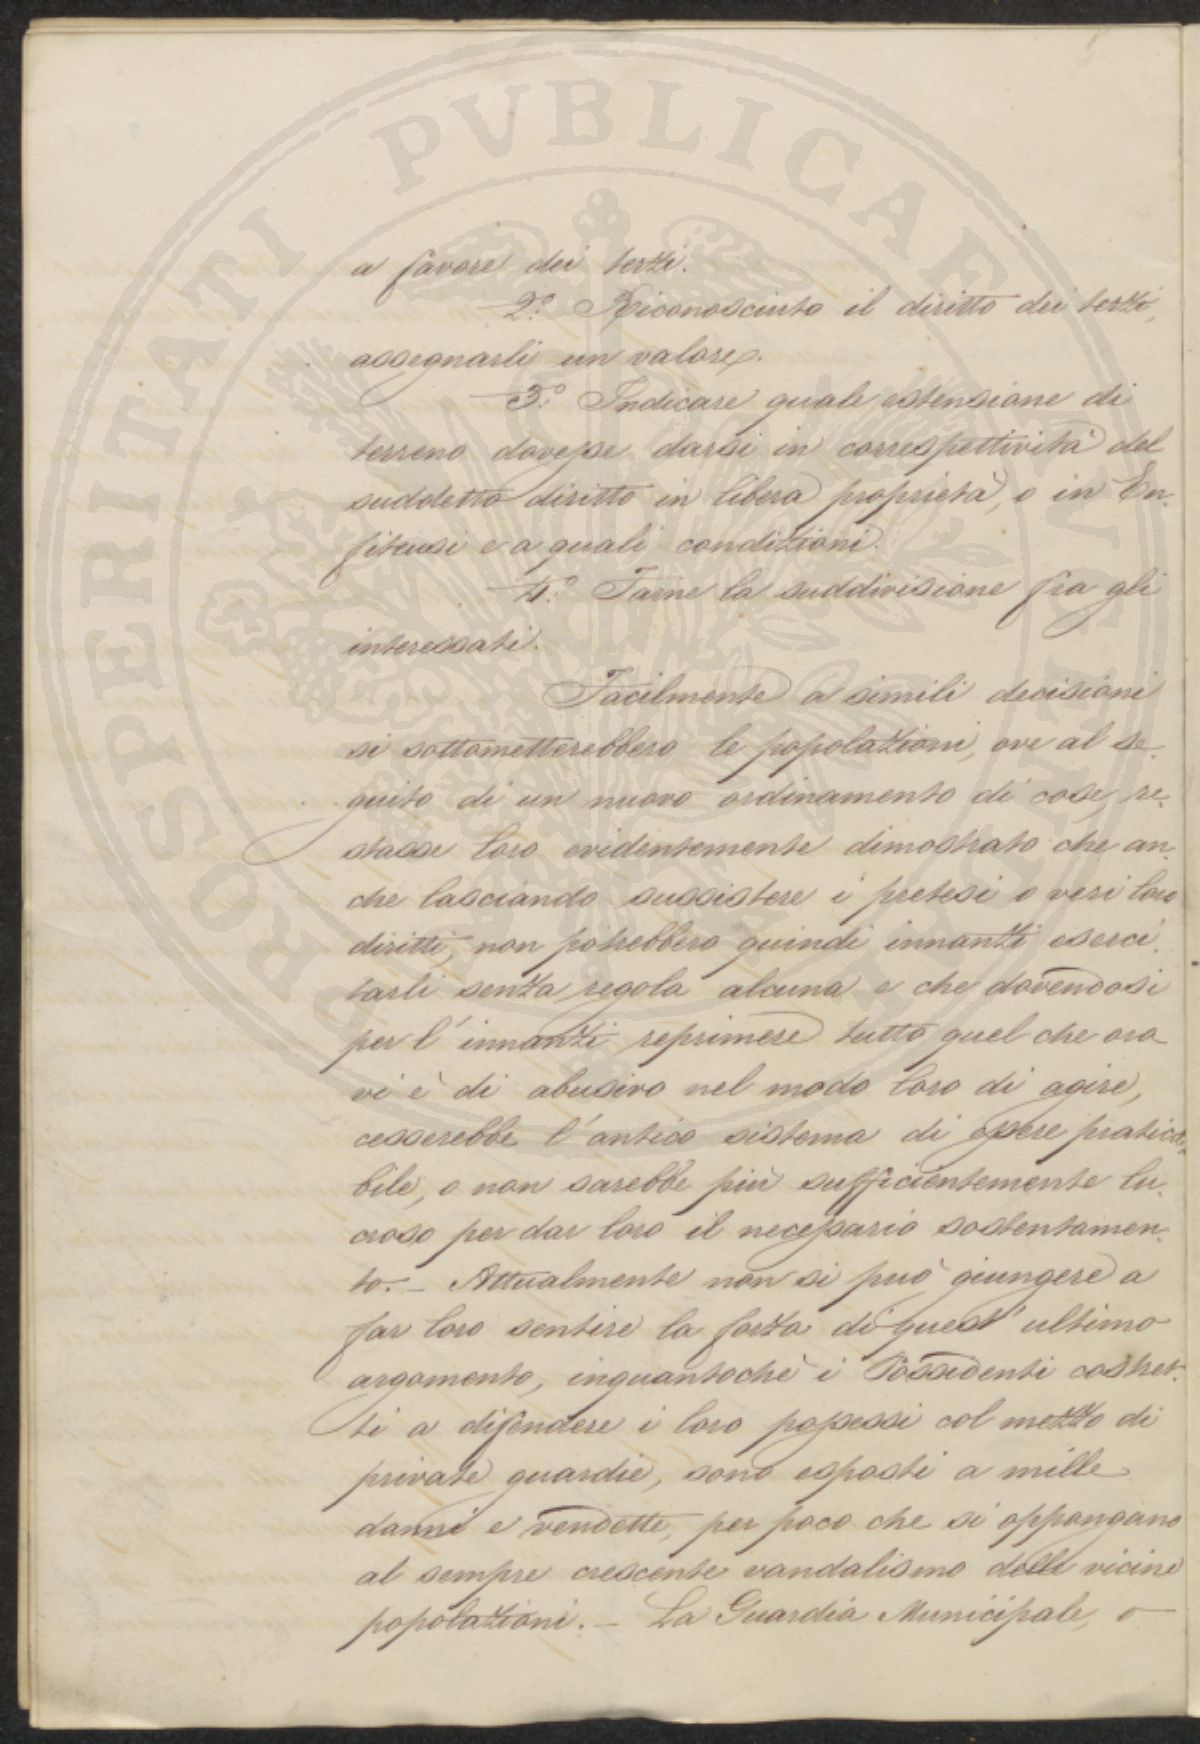 a favore dei terzi.
2.º Riconosciuto il diritto dei terzi,
assegnarli un valore.
3.º Indicare quale estensione di
terreno dovesse darsi in correspettività del
suddetto diritto in libera proprietà, o in En-
fiteusi e a quali condizioni.
4.º Farne la suddivisione fra gli
interessati.
Facilmente a simili decisioni
si sottometterebbero le popolazioni, ove al se-
guito di un nuovo ordinamento di cose, re-
stasse loro evidentemente dimostrato che an-
che lasciando sussistere i pretesi o veri loro
diritti, non potrebbero quindi innanzi eserci-
tarli senza regola alcuna e che dovendosi
per l'innanzi reprimere tutto quel che ora
vi è di abusivo nel modo loro di agire,
cesserebbe l'antico sistema di essere pratica-
bile, o non sarebbe più sufficientemente lu-
croso per dar loro il necessario sostentamen-
to. – Attualmente non si può giungere a
far loro sentire la forza di quest'ultimo
argomento, inquantochè i Possidenti costret-
ti a difendere i loro possessi col mezzo di
private guardie, sono esposti a mille
danni e vendette, per poco che si oppongano
al sempre crescente vandalismo delle vicine
popolazioni. – La Guardia Municipale, o
PROSPERITATI PVBLICAE AVGENDAE